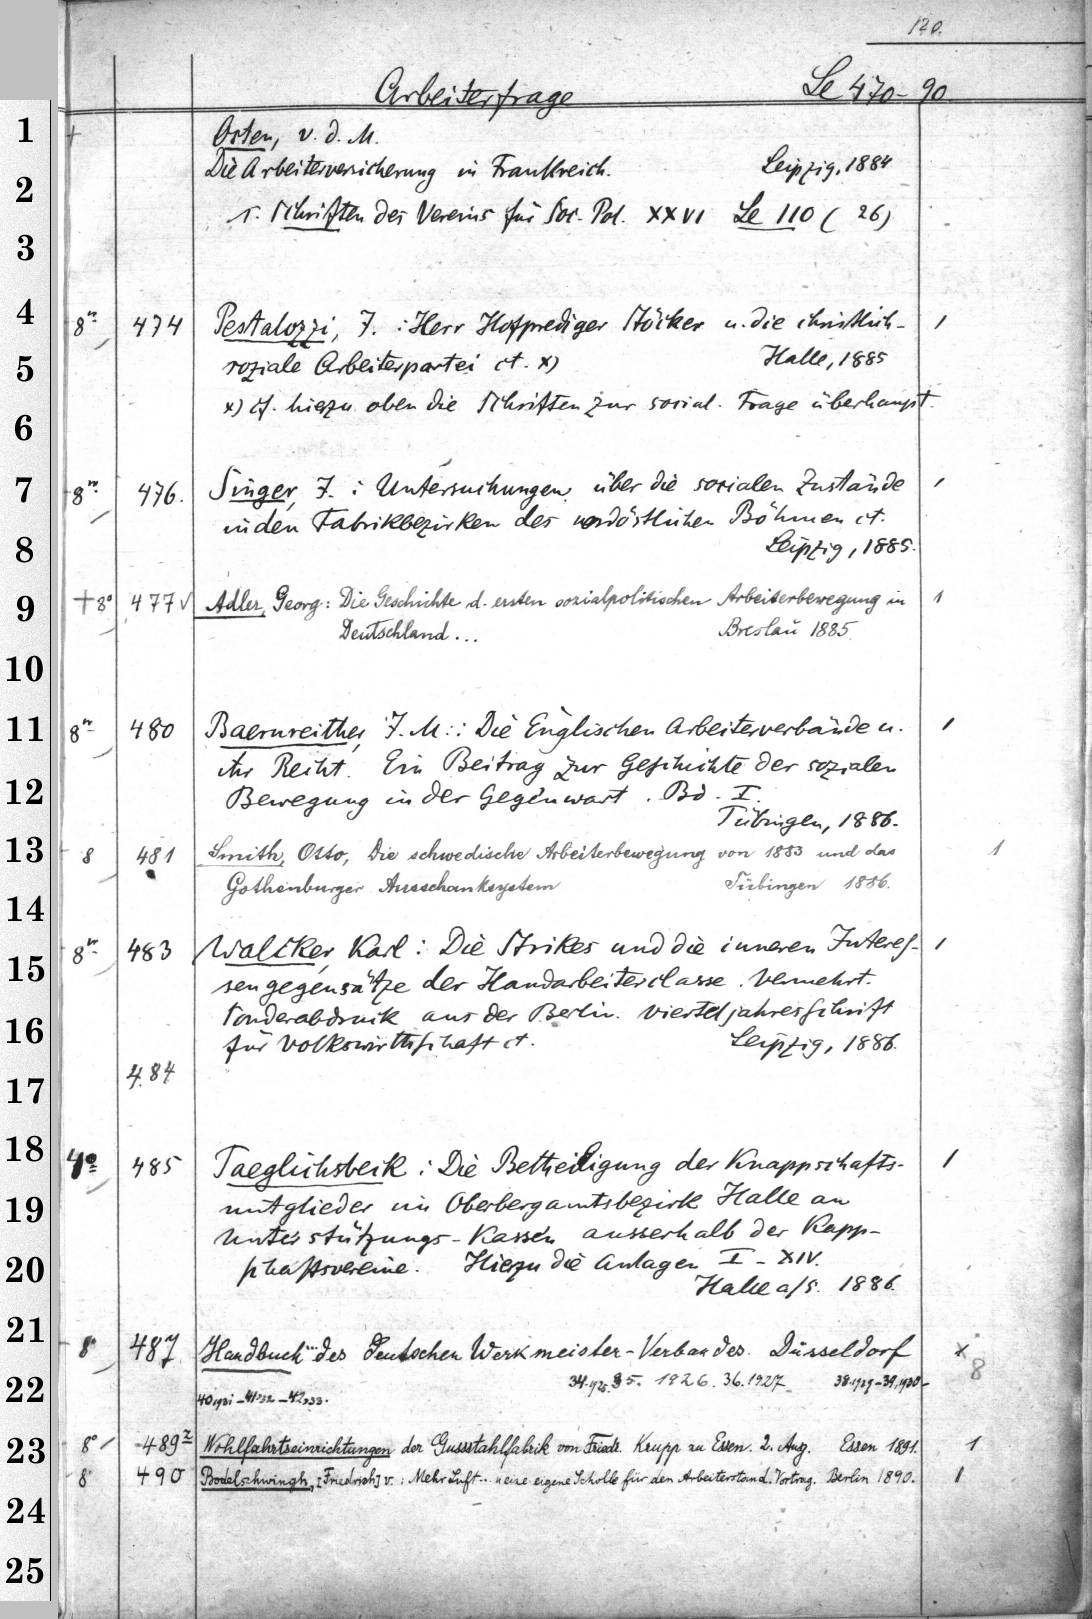 120.
Arbeiterfrage Le 470-90
1
Osten, v. d. M.
Die Arbeiterversicherung in Frankreich. Leipzig, 1884
2
s. Schriften des Vereins für Soc. Pol. XXVI Le 110 (26)
3
4
8° 474 Pestalozzi, J. : Herr Hofprediger Stöcker u. die christlich- 1
5
soziale Arbeiterpartei ct. x) Halle, 1885
x) cf. hiezu oben die Schriften zur social. Frage überhaupt.
6
7
8° 476. Singer, J. : Untersuchungen über die sozialen Zustände 1
in den Fabrikbezirken des nordöstlichen Böhmen ct.
8
Leipzig, 1885.
9
+ 8° 477 √ Adler, Georg: Die Geschichte d. ersten sozialpolitischen Arbeiterbewegung in 1
Deutschland ... Breslau 1885.
10
11
8° 480 Baernreither, J. M. : Die Englischen Arbeiterverbände u. 1
ihr Recht. Ein Beitrag zur Geschichte der sozialen
12
Bewegung in der Gegenwart. Bd. I.
Tübingen, 1886.
13
8 481 Smith, Otto, Die schwedische Arbeiterbewegung von 1883 und das 1
Gothenburger Ausschanksystem Tübingen 1886.
14
8° 483 Walcker, Karl : Die Strikes und die inneren Interes- 1
15
sengegensätze der Handarbeiterclasse. Vermehrt.
Sonderabdruck aus der Berlin. Vierteljahresschrift
16
für Volkswirthschaft ct. Leipzig, 1886.
484
17
18
4° 485 Taeglichsbeck : Die Betheiligung der Knappschafts- 1
mitglieder im Oberbergamtsbezirk Halle an
19
Unterstützungs-Kassen ausserhalb der Kapp-
schaftsvereine. Hiezu die Anlagen I - XIV.
20
Halle a/S. 1886.
21
8° 487 Handbuch des Deutschen Werkmeister-Verbandes. Düsseldorf x
34.1925. 35. 1926. 36.1927 38.1929-39.1930- 8
22
40.1931-41.1932-42.1933.
23
8° 489z Wohlfahrtseinrichtungen der Gussstahlfabrik von Friedr. Krupp zu Essen. 2. Ausg. Essen 1891. 1
8° 490 Bodelschwingh, [Friedrich] v. : Mehr Luft .. u eine eigene Scholle für den Arbeiterstand. Vortrag. Berlin 1890. 1
24
25